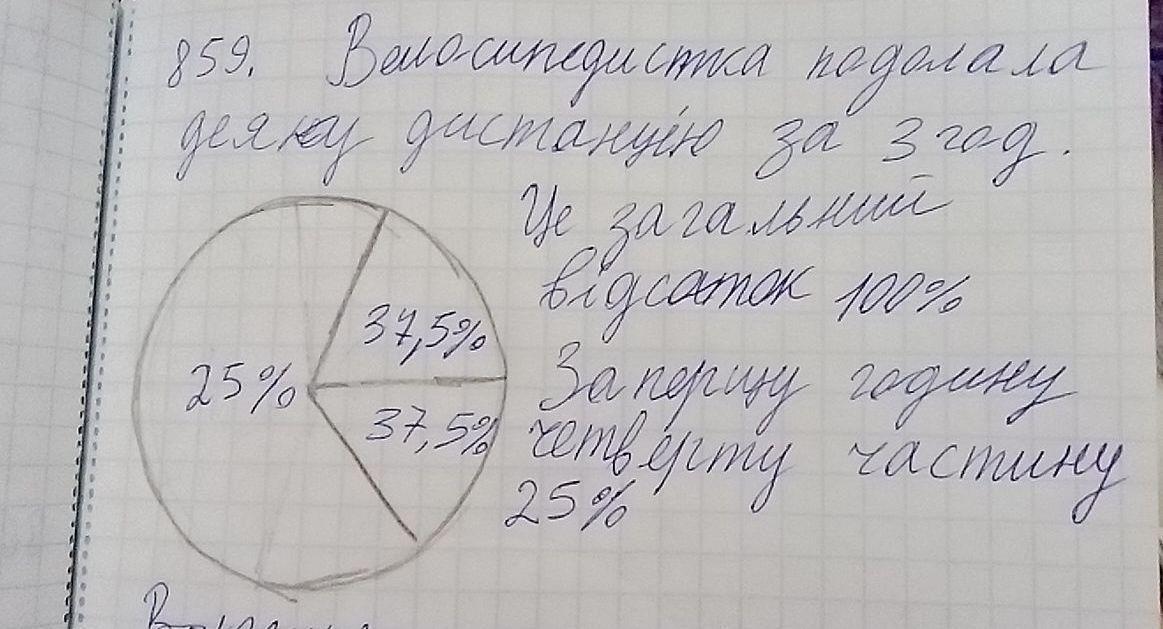 859. Велосипедистка подолала
деяку дистанцію за 3 год.
Це загальний
відсоток 100%
37,5%
25%
За першу годину
37,5%
четверту частину
25%